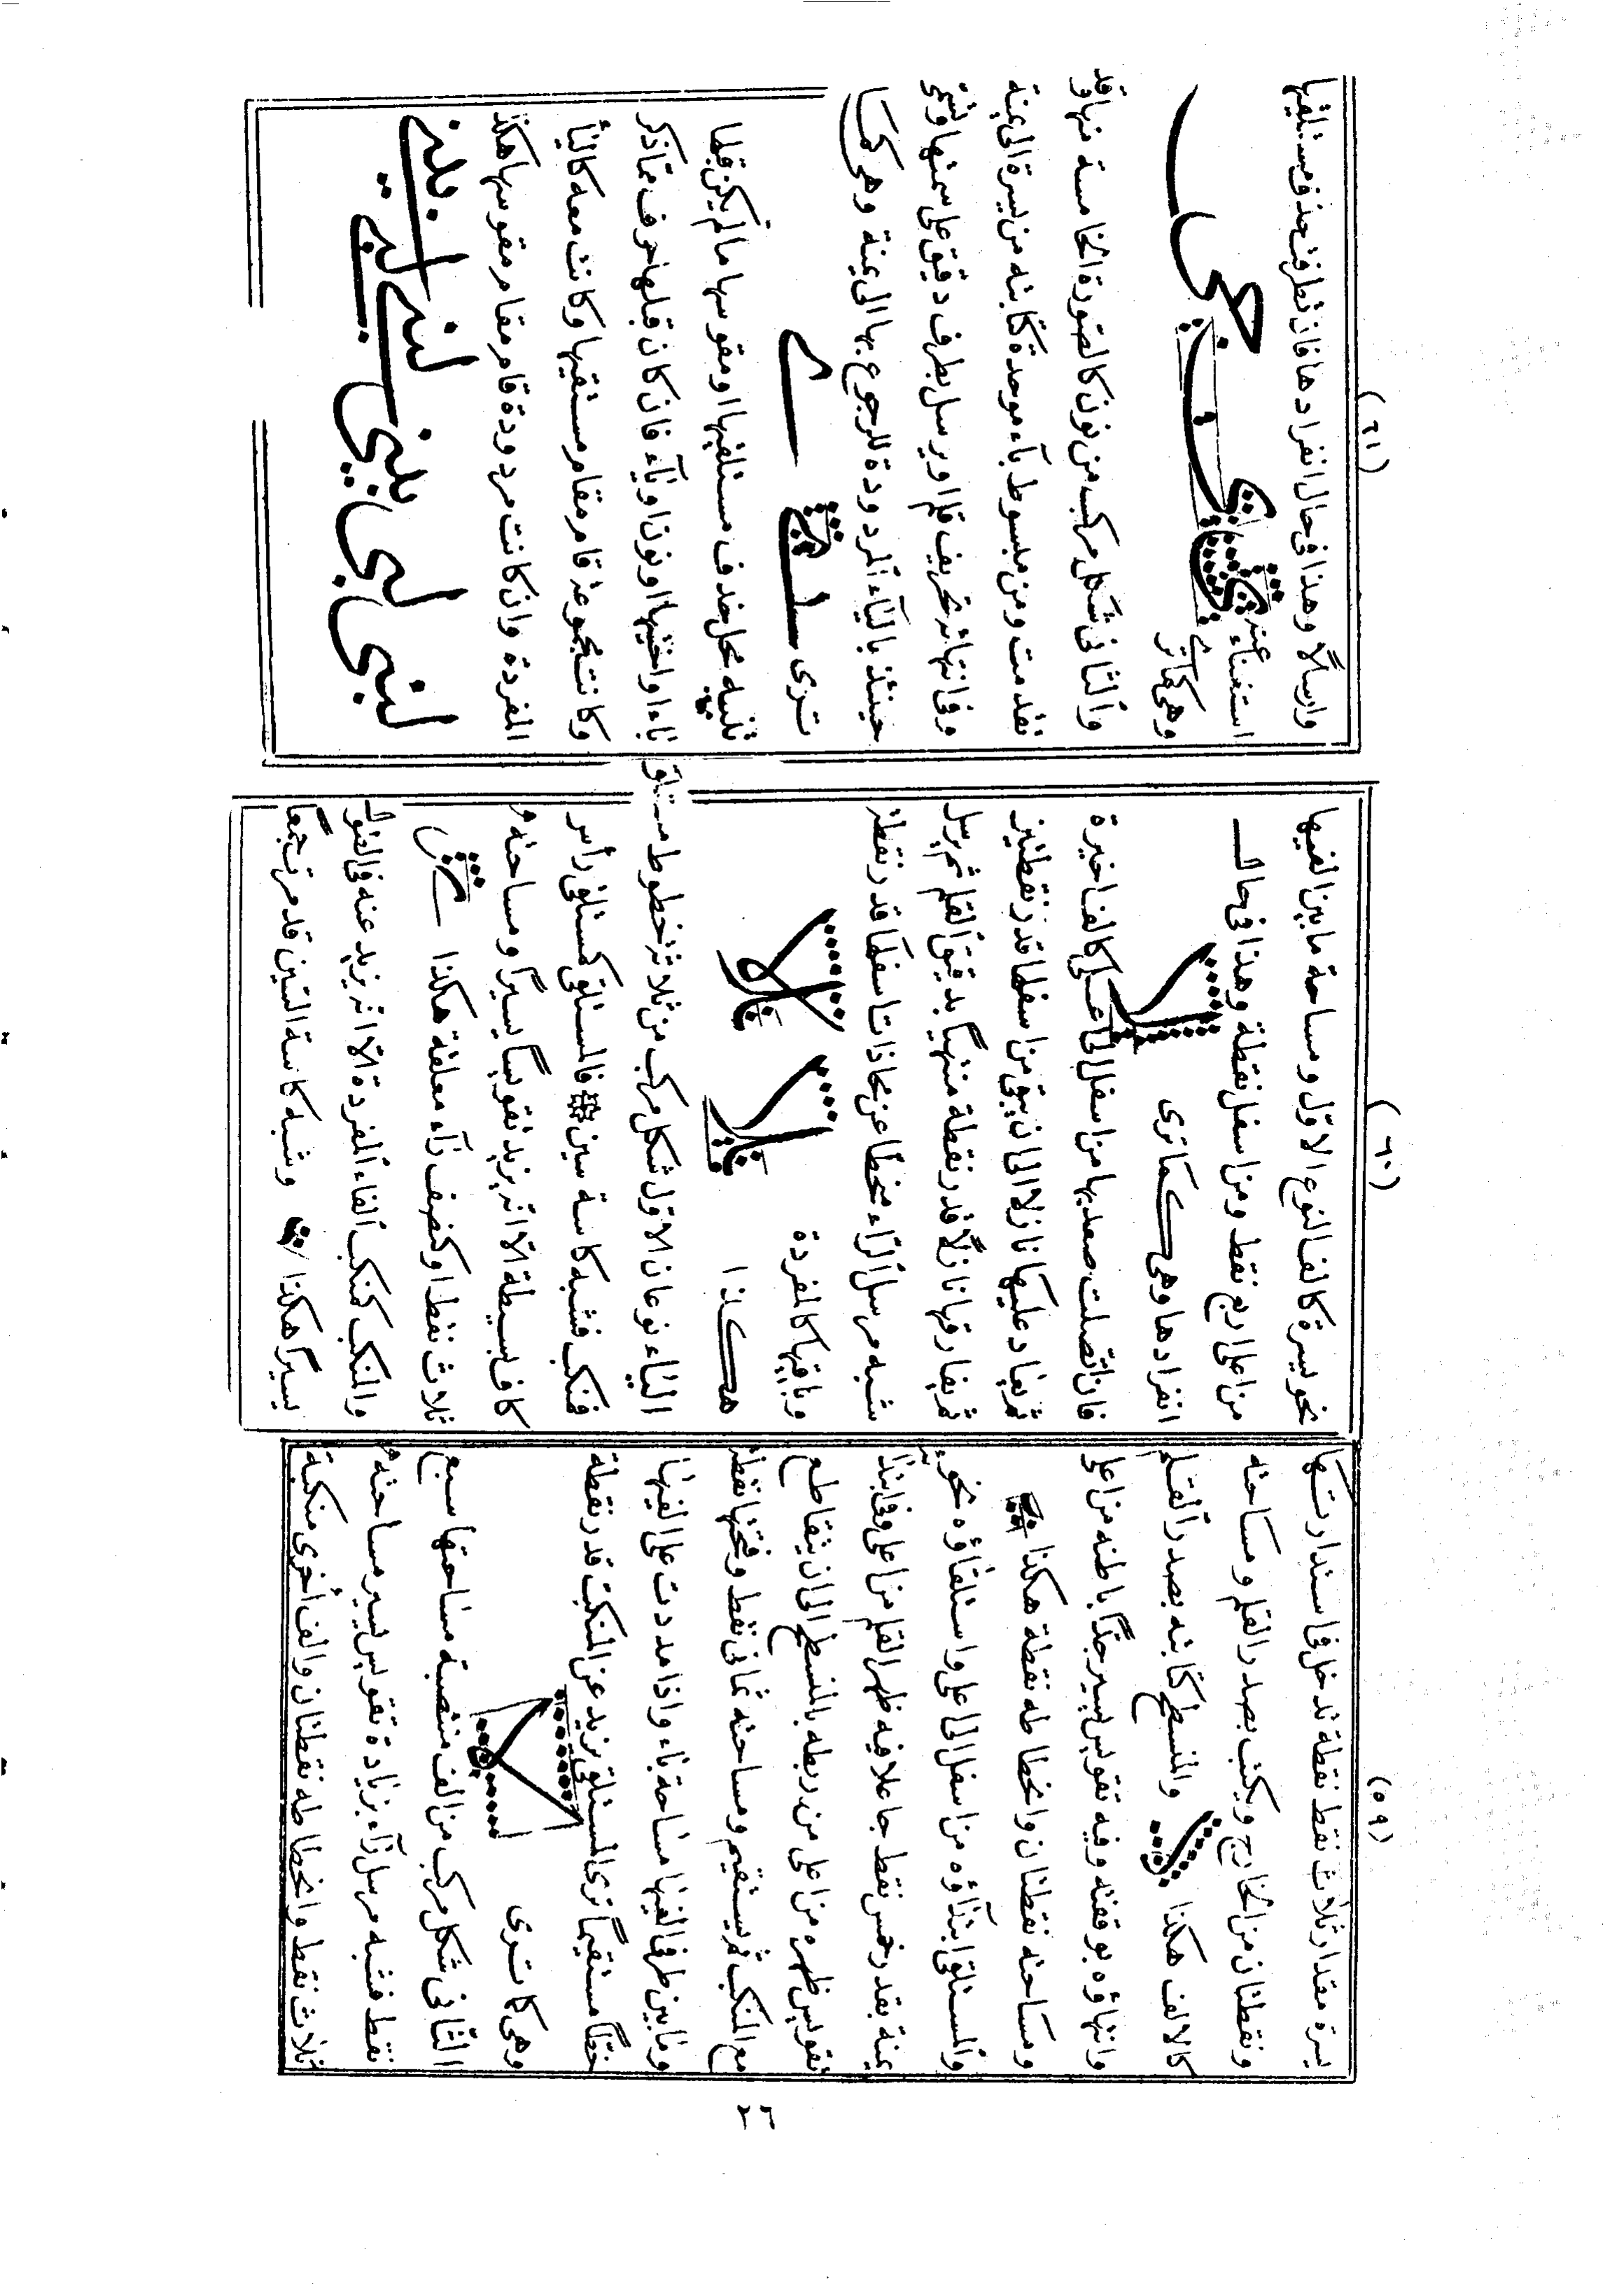 (٥٩)
يسرة مقدار ثلاث نقط نقطة تدخل في استدارتها
ونقطتان من الخارج ويكتب بصدر القلم ومساحته
كالالف هكذا والمنسطح كتابته بصدر القلم
وانتهاؤه بوقفته وفيه تقويس يسير جدّاً باطنه من اعلى
ومساحته نقطتان وانحطاطه نقطة هكذا
والمستلقى ابتداؤه من اسفل الى اعلى واستلقاؤه نحو
يمنة بقدر خمس نقط جاعلا فيه ظهر القلم من اعلى وفي ابتدا
تقويس ظهره من اعلى من ربطه بالمنسطح الى ان يتقاطع
مع المنكب ثم يستقيم ومساحته ثمانى نقط وفتحها نقطة
وما بين طرفي الفيها مساحة باء واذا مددت على الفيها
خطّاً مستقيماً ترى المستلقى يزيد عن المنكب قدر نقطة
وهى كما ترى
الثانى شكل مركب من الف منتصبة مساحتها سبع
نقط فشبه مرسل رآء بزيادة تقويس يسير مساحته
ثلاث نقط وانحطاطه نقطتان والف أخرى منكبة
(٦٠)
نحو يسرة كالف النوع الاوّل ومساحة ما بين الفيها
من اعلى اربع نقط ومن اسفل نقطة وهذا في حال
انفرادها وهى كما ترى
فان اتّصلت صعد بها من اسفل الى اعلى كالف اخيرة
ثم يعاد عليها نازلا الى ان يبقى من اسفلها قدر نقطتين
ثم يفارقها نازلاً قدر نقطة منتهياً بدقيق القلم ثم يرسل
شبه مرسل الرّاء منحطا عن محاذات اسفلها قدر نقطة
وباقيها كالمفردة
هكذا
الياء نوعان الاوّل شكل مركب من ثلاثة خطوط مستلق
فمنكب فشبه كاسة سين فالمستلقى كمستلقى رأس
كاف بسيطة الّا انّه يزيد تقويساً يسيراً ومساحته
ثلاث نقط او كنصف رآء معلقة هكذا
والمنكب كمنكب الفاء المفردة الّا انه يزيد عنه في الطول
يسيراً هكذا وشبه كاسة السّين قد مرّت جمعاً
(٦١)
وارسالاً وهذا في حال انفرادها فان تطرفت حذف مستلقيها
استغناء عنه
وهى كما ترى
والثانى شكل مركب من نون كالصّورة الخامسة منها وقد
تقدمت ومن مبسوط بآء موحدة كتابته من يسرة الى يمنة
وفي انتهائه تحريف قلم او يرسل بطرف دقيق على سمتها وتسمّى
حينئذ بالياء المردودة للرجوع بها الى يمنة وهى كما
ترى
تنبيه محل حذف مستلقيها او مقوسها ما لم يكن قبلها
باء او اختيها او نون او ياء فان كان قبلها حرف ممّا ذكر
وكانت مجموعة قام مقام مستلقيها وكانت معه كالياء
المفردة وان كانت مردودة قام مقام مقوسها هكذا
٢٦